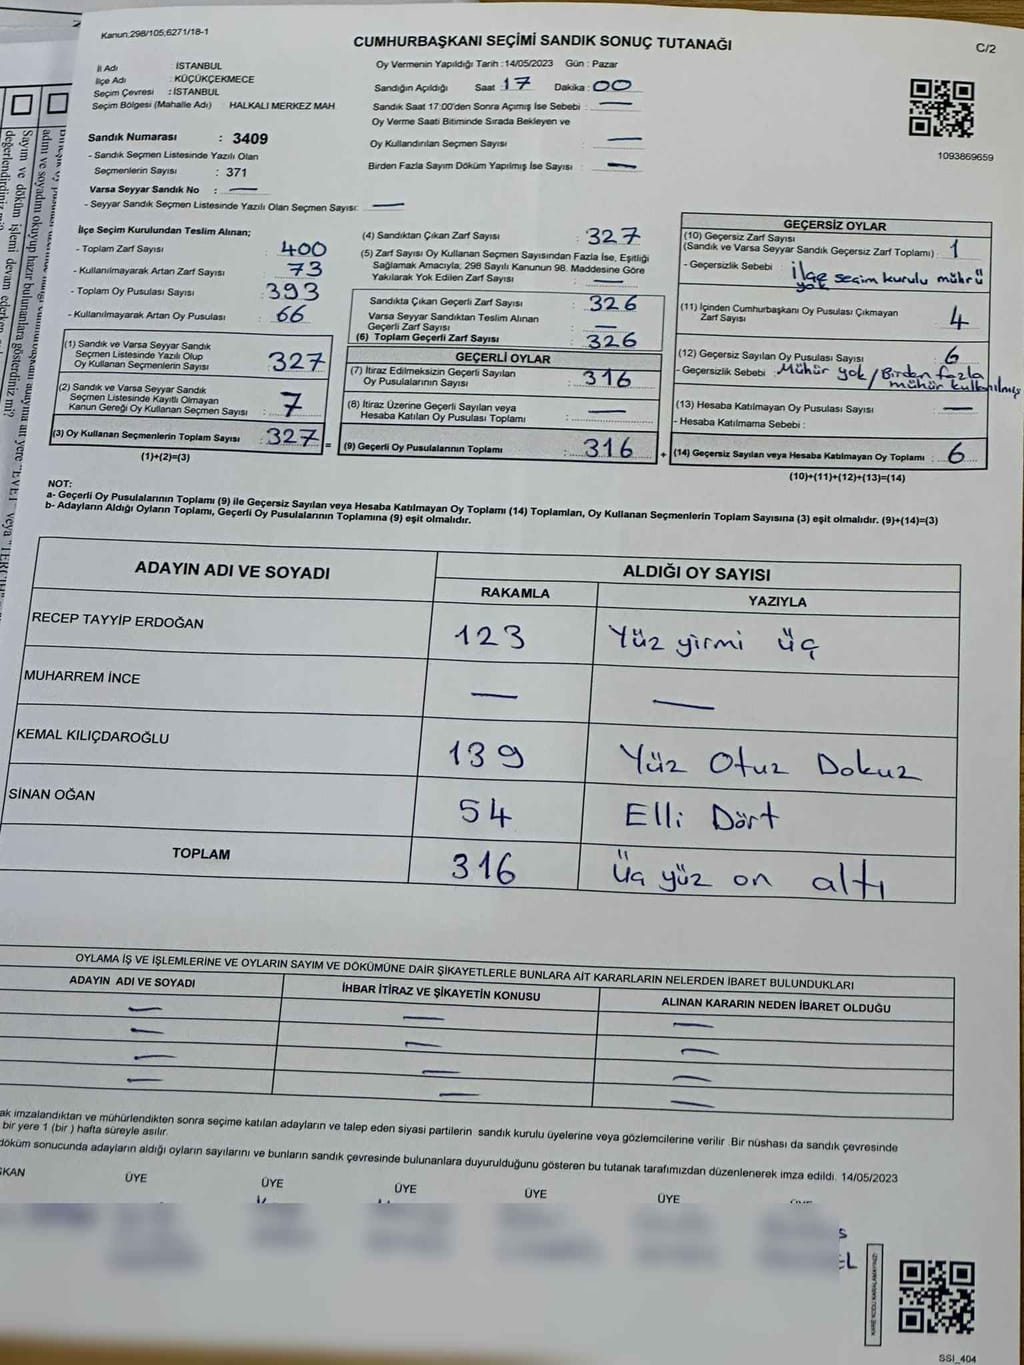 Kanun.298/105;6271/18-1
CUMHURBAŞKANI SEÇİMİ SANDIK SONUÇ TUTANAĞI
C/2
İl Adı : İSTANBUL
İlçe Adı : KÜÇÜKÇEKMECE
Seçim Çevresi : İSTANBUL
Seçim Bölgesi (Mahalle Adı) HALKALI MERKEZ MAH
Sandık Numarası : 3409
- Sandık Seçmen Listesinde Yazılı Olan
Seçmenlerin Sayısı : 371
Varsa Seyyar Sandık No : —
- Seyyar Sandık Seçmen Listesinde Yazılı Olan Seçmen Sayısı: —
Oy Vermenin Yapıldığı Tarih : 14/05/2023 Gün : Pazar
Sandığın Açıldığı Saat : 17 Dakika : 00
Sandık Saat 17:00'den Sonra Açımış İse Sebebi : —
Oy Verme Saati Bitiminde Sırada Bekleyen ve
Oy Kullandırılan Seçmen Sayısı : —
Birden Fazla Sayım Döküm Yapılmış İse Sayısı : —
1093869659
İlçe Seçim Kurulundan Teslim Alınan;
- Toplam Zarf Sayısı : 400
- Kullanılmayarak Artan Zarf Sayısı : 73
- Toplam Oy Pusulası Sayısı : 393
- Kullanılmayarak Artan Oy Pusulası : 66
(1) Sandık ve Varsa Seyyar Sandık
Seçmen Listesinde Yazılı Olup
Oy Kullanan Seçmenlerin Sayısı : 327
(2) Sandık ve Varsa Seyyar Sandık
Seçmen Listesinde Kayıtlı Olmayan
Kanun Gereği Oy Kullanan Seçmen Sayısı : 7
(3) Oy Kullanan Seçmenlerin Toplam Sayısı : 327 =
(1)+(2)=(3)
(4) Sandıktan Çıkan Zarf Sayısı : 327
(5) Zarf Sayısı Oy Kullanan Seçmen Sayısından Fazla İse, Eşitliği
Sağlamak Amacıyla, 298 Sayılı Kanunun 98. Maddesine Göre
Yakılarak Yok Edilen Zarf Sayısı : —
Sandıkta Çıkan Geçerli Zarf Sayısı : 326
Varsa Seyyar Sandıktan Teslim Alınan
Geçerli Zarf Sayısı : —
(6) Toplam Geçerli Zarf Sayısı : 326
GEÇERLİ OYLAR
(7) İtiraz Edilmeksizin Geçerli Sayılan
Oy Pusulalarının Sayısı : 316
(8) İtiraz Üzerine Geçerli Sayılan veya
Hesaba Katılan Oy Pusulası Toplamı : —
(9) Geçerli Oy Pusulalarının Toplamı : 316 +
GEÇERSİZ OYLAR
(10) Geçersiz Zarf Sayısı
(Sandık ve Varsa Seyyar Sandık Geçersiz Zarf Toplamı) : 1
- Geçersizlik Sebebi : İlçe seçim kurulu mührü
yok
(11) İçinden Cumhurbaşkanı Oy Pusulası Çıkmayan
Zarf Sayısı : 4
(12) Geçersiz Sayılan Oy Pusulası Sayısı : 6
- Geçersizlik Sebebi : Mühür yok / Birden fazla
mühür kullanılmış
(13) Hesaba Katılmayan Oy Pusulası Sayısı : —
- Hesaba Katılmama Sebebi :
(14) Geçersiz Sayılan veya Hesaba Katılmayan Oy Toplamı : 6
(10)+(11)+(12)+(13)=(14)
NOT:
a- Geçerli Oy Pusulalarının Toplamı (9) ile Geçersiz Sayılan veya Hesaba Katılmayan Oy Toplamı (14) Toplamları, Oy Kullanan Seçmenlerin Toplam Sayısına (3) eşit olmalıdır. (9)+(14)=(3)
b- Adayların Aldığı Oyların Toplamı, Geçerli Oy Pusulalarının Toplamına (9) eşit olmalıdır.
ADAYIN ADI VE SOYADI
ALDIĞI OY SAYISI
RAKAMLA YAZIYLA
RECEP TAYYİP ERDOĞAN 123 Yüz yirmi üç
MUHARREM İNCE — —
KEMAL KILIÇDAROĞLU 139 Yüz Otuz Dokuz
SİNAN OĞAN 54 Elli Dört
TOPLAM 316 Üç yüz on altı
OYLAMA İŞ VE İŞLEMLERİNE VE OYLARIN SAYIM VE DÖKÜMÜNE DAİR ŞİKAYETLERLE BUNLARA AİT KARARLARIN NELERDEN İBARET BULUNDUKLARI
ADAYIN ADI VE SOYADI İHBAR İTİRAZ VE ŞİKAYETİN KONUSU ALINAN KARARIN NEDEN İBARET OLDUĞU
— — —
— — —
— — —
— — —
ak imzalandıktan ve mühürlendikten sonra seçime katılan adayların ve talep eden siyasi partilerin sandık kurulu üyelerine veya gözlemcilerine verilir .Bir nüshası da sandık çevresinde
bir yere 1 (bir ) hafta süreyle asılır.
döküm sonucunda adayların aldığı oyların sayılarını ve bunların sandık çevresinde bulunanlara duyurulduğunu gösteren bu tutanak tarafımızdan düzenlenerek imza edildi. 14/05/2023
ŞKAN ÜYE ÜYE ÜYE ÜYE ÜYE
SSI_404